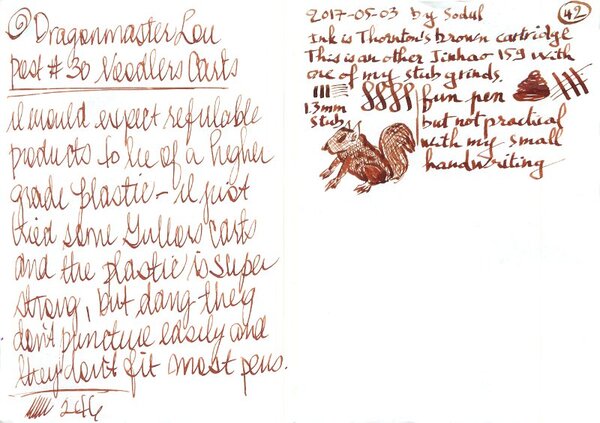 @DragonmasterLou
post #30 Noodlers Carts
i would expect refillable
products to be of a higher
grade plastic - i just
tried some Gullors carts
and the plastic is super
strong, but dang they
don't puncture easily and
they don't fit most pens.
2017-05-03 by Sodul
42
Ink is Thornton's brown cartridge
This is an other Jinhao 159 with
one of my stub grinds.
1.3mm
stub
fun pen
but not practical
with my small
handwriting